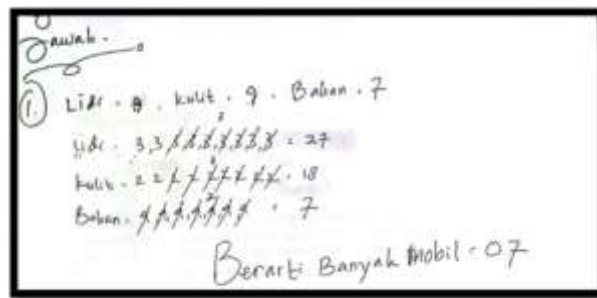 Jawab.
1. Lidi = 9. Kulit = 9. Baban = 7
Lidi = 3, 3 3, 3, 3, 3, 3, 3, 3 = 27
Kulit = 2 2 = 18
Baban = = 7
Berarti Banyak Mobil = 07